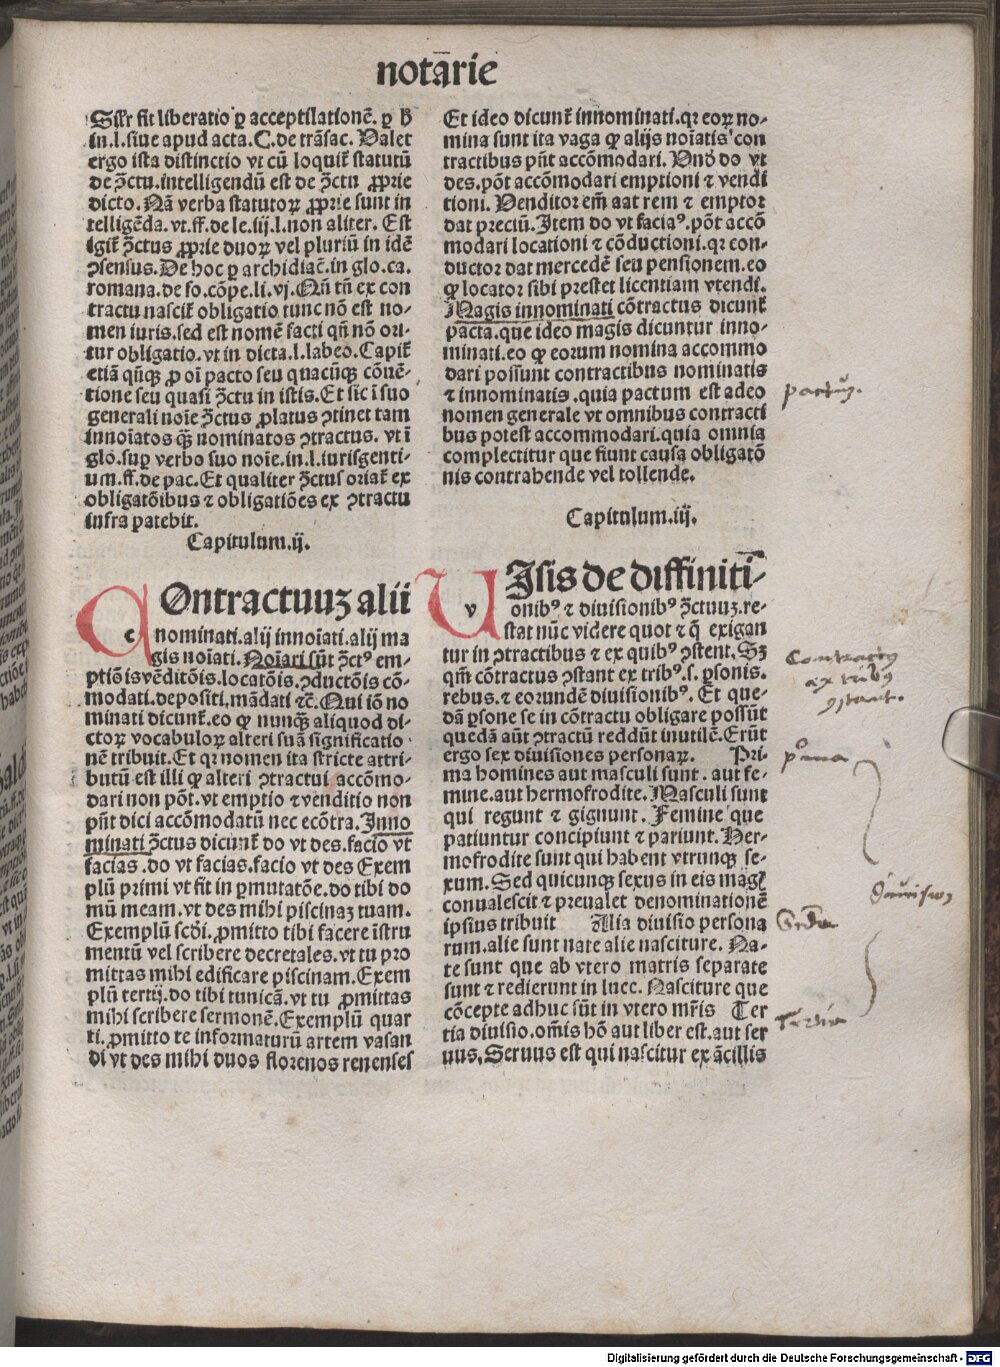 notarie
Sil'r fit liberatio ꝑ acceptilationē. ꝑ
in.l.siue apud acta.C.de trāsac. Valet
ergo ista distinctio vt cū loquit̄ statutū
de ꝯctu.intelligendū est de ꝯctu ꝓprie
dicto. Nā verba statutoꝝ ꝓprie sunt in
telligēda. vt.ff.de le.iij.l.non aliter. Est
igit̄ ꝯctus ꝓprie duoꝝ vel pluriū in idē
ꝯsensus. De hoc ꝑ archidiac̄.in glo.ca.
romana.de fo.cōpe.li.vj. Qn̄ tn̄ ex con
tractu nascit̄ obligatio tunc nō est no-
men iuris.sed est nomē facti qn̄ nō ori-
tur obligatio. vt in dicta.l.labeo. Capit̄
etiā qn̄qꝫ ꝓ oī pacto seu quacūqꝫ cōuē-
tione seu quasi ꝯctu in istis. Et sic ī suo
generali noīe ꝯctus ꝓlatus ꝯtinet tam
innoīatos qꝫ nominatos ꝯtractus. vt ī
glo.suꝑ verbo suo noīe.in.l.iurisgenti-
um.ff.de pac. Et qualiter ꝯctus oriat̄ ex
obligatōibus ⁊ obligatiōes ex ꝯtractu
infra patebit.
Capitulum.ij.
COntractuuꝫ alii
c nominati.alij innoīati.alij ma
gis noīati. Noīati sūt ꝯctꝰ em-
ptiōis vēditōis.locatōis.ꝯductōis cō-
modati.depositi.mādati ⁊c̄. Qui iō no
minati dicunt̄.eo ꝙ nunqꝫ aliquod di-
ctoꝝ vocabuloꝝ alteri suā significatio
nē tribuit. Et qꝛ nomen ita stricte attri-
butū est illi ꝙ alteri ꝯtractui accōmo-
dari non pōt. vt emptio ⁊ venditio non
pn̄t dici accōmodatū nec ecōtra. Inno
minati ꝯctus dicunt̄ do vt des.facio vt
facias.do vt facias.facio vt des Exem
plū primi vt fit in ꝑmutatōe.do tibi do
mū meam.vt des mihi piscinaꝫ tuam.
Exemplū scd̄i.ꝓmitto tibi facere īstru
mentū vel scribere decretales.vt tu pro
mittas mihi edificare piscinam. Exem
plū tertij.do tibi tunicā.vt tu ꝓmittas
mihi scribere sermonē. Exemplū quar
ti.ꝓmitto te informaturū artem vasan
di vt des mihi duos florenos renenses
Et ideo dicunt̄ innominati.qꝛ eoꝝ no-
mina sunt ita vaga ꝙ alijs noīatis con
tractibus pn̄t accōmodari. Vn̄ do vt
des.pōt accōmodari emptioni ⁊ vendi
tioni. Venditor em̄ dat rem ⁊ emptor
dat preciū. Item do vt faciaꝰ.pōt accō
modari locationi ⁊ cōductioni.qꝛ con-
ductor dat mercedē seu pensionem.eo
ꝙ locator sibi prestet licentiam vtendi.
Magis innominati cōtractus dicunt̄
pacta.que ideo magis dicuntur inno-
minati.eo ꝙ eorum nomina accommo
dari possunt contractibus nominatis
⁊ innominatis.quia pactum est adeo
nomen generale vt omnibus contracti
bus potest accommodari.quia omnia
complectitur que fiunt causa obligatō
nis contrahende vel tollende.
Capitulum.iij.
UIsis de diffiniti-
v onibꝰ ⁊ diuisionibꝰ ꝯctuuꝫ.re-
stat nūc videre quot ⁊ q̄ exigan
tur in ꝯtractibus ⁊ ex quibꝰ ꝯstent. Sꝫ
qm̄ cōtractus ꝯstant ex tribꝰ.s.ꝑsonis.
rebus.⁊ eorundē diuisionibꝰ. Et que-
dā ꝑsone se in cōtractu obligare possūt
quedā aūt ꝯtractū reddūt inutilē. Erūt
ergo sex diuisiones personaꝝ. Pri-
ma homines aut masculi sunt. aut fe-
mine.aut hermofrodite. Masculi sunt
qui regunt ⁊ gignunt. Femine que
patiuntur concipiunt ⁊ pariunt. Her-
mofrodite sunt qui habent vtrunqꝫ se-
xum. Sed quicunqꝫ sexus in eis maḡ
conualescit ⁊ preualet denominationē
ipsius tribuit Alia diuisio persona
rum.alie sunt nate alie nasciture. Na-
te sunt que ab vtero matris separate
sunt ⁊ redierunt in lucc. Nasciture que
cōcepte adhuc sūt in vtero mr̄is Ter
tia diuisio. om̄is hō aut liber est.aut ser
uus. Seruus est qui nascitur ex ācillis
pactuꝫ.
Contractus
ex tribus
ꝯstant.
pͦma
diuisiones
Secda
Tertia
Digitalisierung gefördert durch die Deutsche Forschungsgemeinschaft - DFG